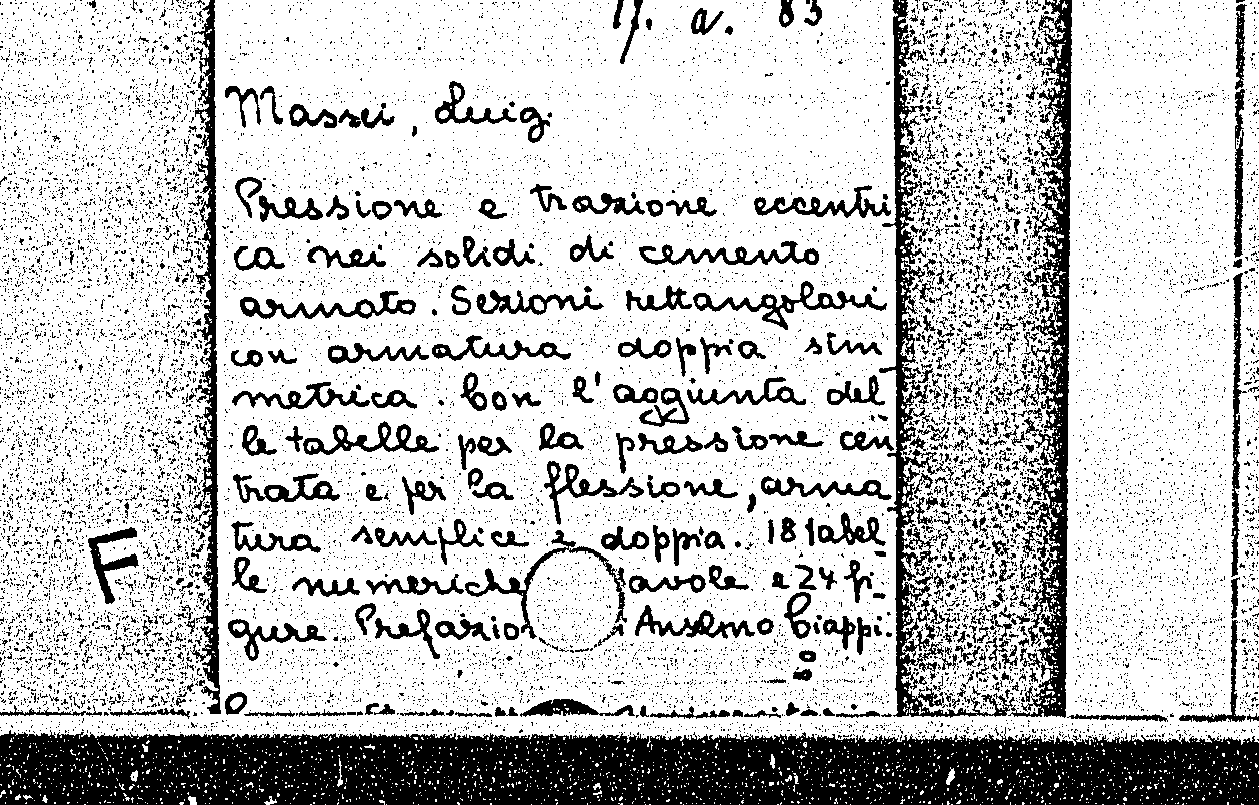 17. a. 83
Massei, Luigi
Pressione e trazione eccentri-
ca nei solidi di cemento
armato. Sezioni rettangolari
con armatura doppia sim-
metrica. Con l'aggiunta del-
le tabelle per la pressione cen-
trata e per la flessione, arma-
tura semplice e doppia. 18 tabel-
le numeriche tavole e 24 fi-
gure. Prefazion i Anselmo Ciappi.
F